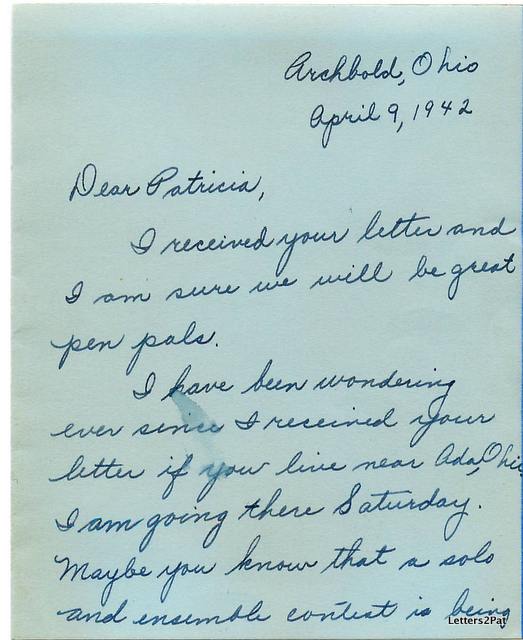 Archbold, Ohio
April 9, 1942
Dear Patricia,
I received your letter and
I am sure we will be great
pen pals.
I have been wondering
ever since I received your
letter if you live near Ada, Ohio.
I am going there Saturday.
Maybe you know that a solo
and ensemble contest is being
Letters2Pat